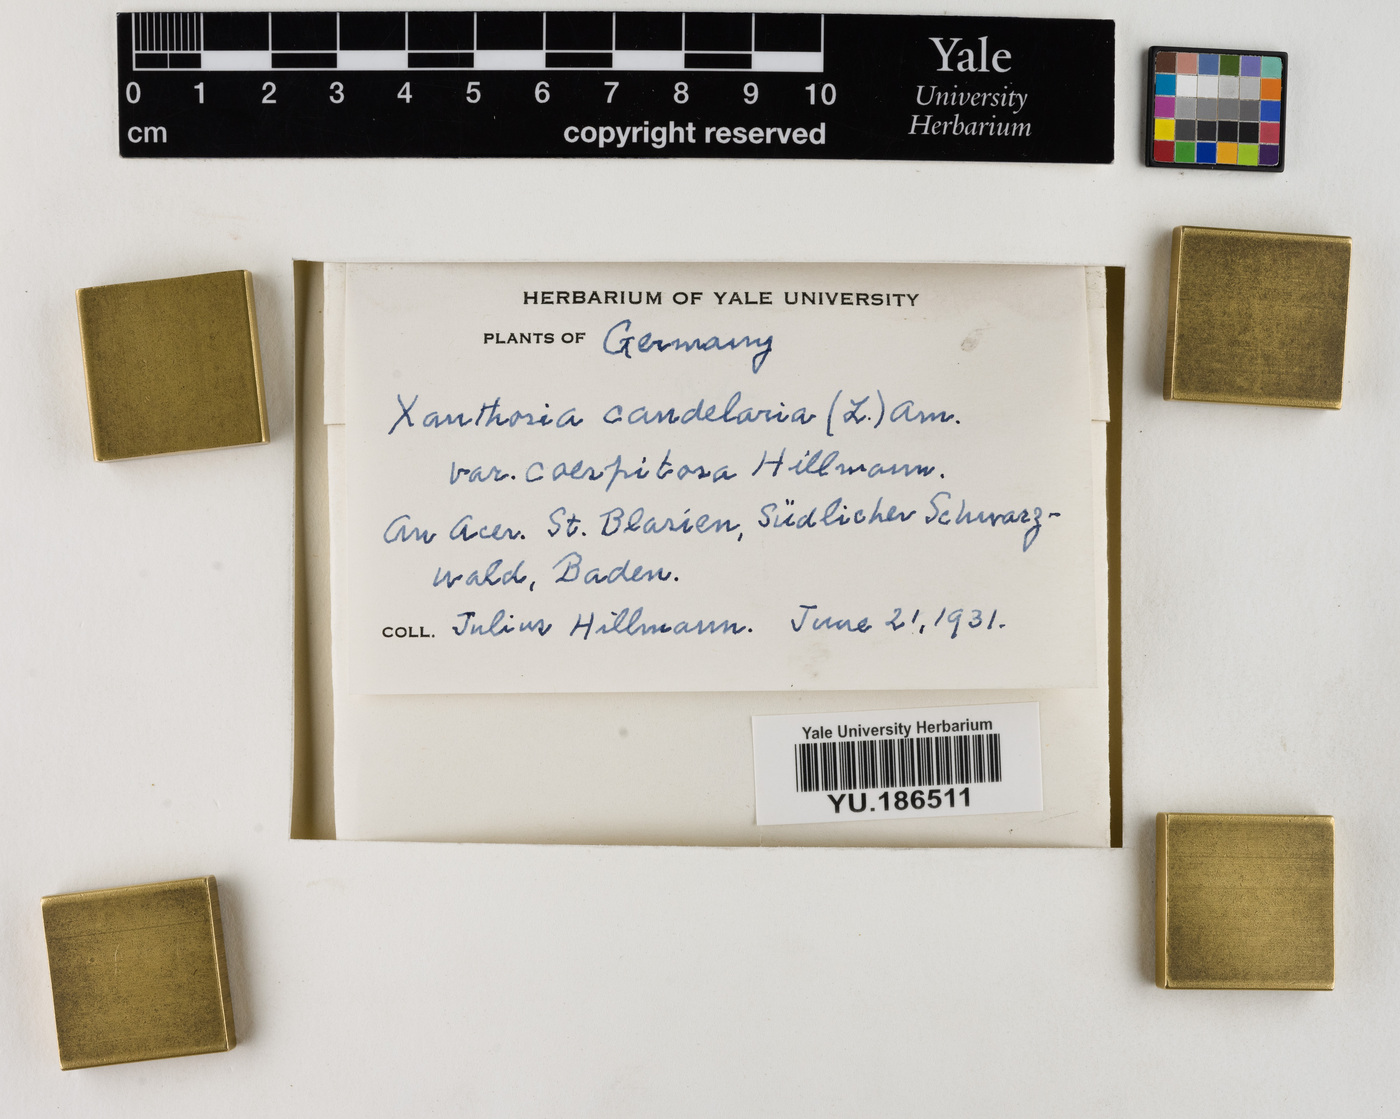 0 1 2 3 4 5 6 7 8 9 10
cm copyright reserved
Yale
University
Herbarium
HERBARIUM OF YALE UNIVERSITY
PLANTS OF Germany
Xanthoria candelaria (L.) Arn.
var. caespitosa Hillmann.
An Acer. St. Blasien, Südlicher Schwarz-
wald, Baden.
COLL. Julius Hillmann. June 21, 1931.
Yale University Herbarium
YU.186511